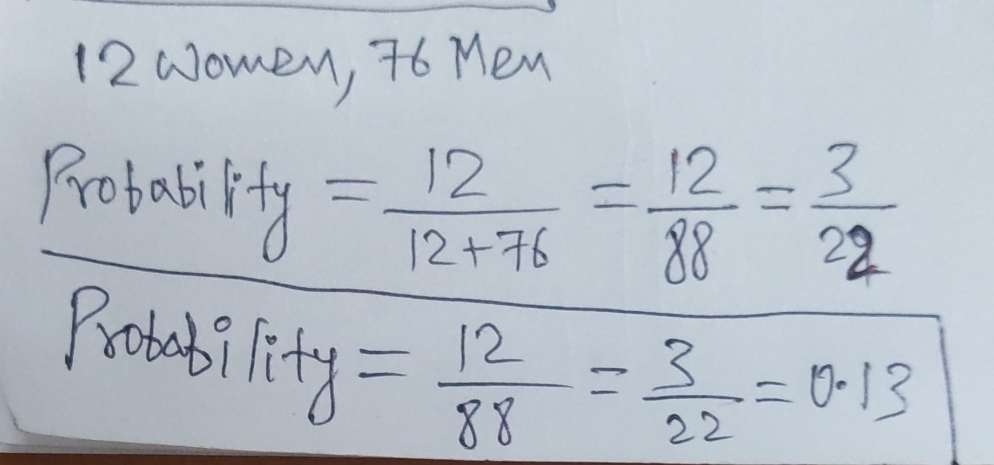 12 Women, 76 Men
Probability = 12/(12+76) = 12/88 = 3/22
Probability = 12/88 = 3/22 = 0.13